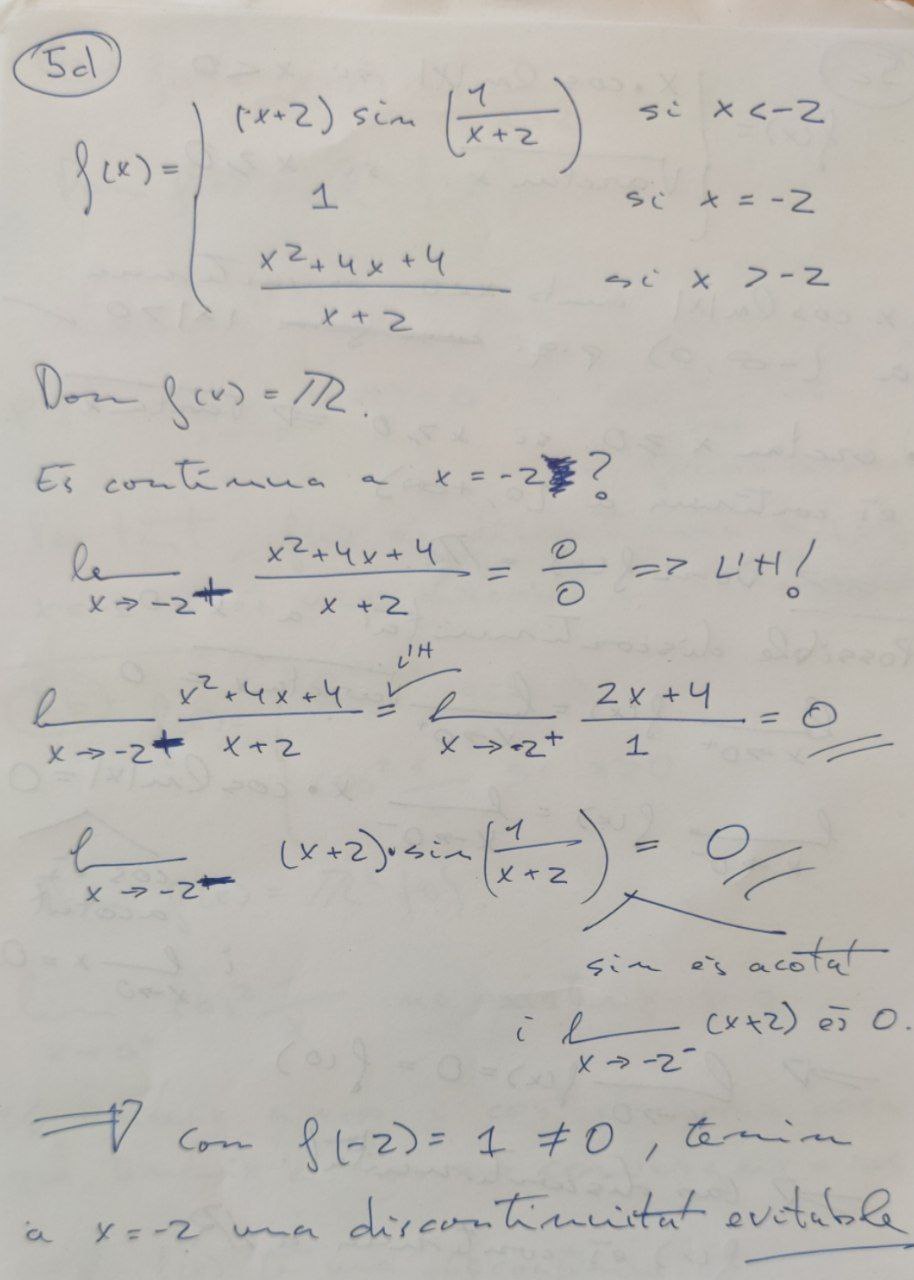 5d
f(x) = { (x+2) sin (1/(x+2)) si x < -2
1 si x = -2
(x²+4x+4)/(x+2) si x > -2
Dom f(x) = ℝ.
És contínua a x = -2 ?
lim x→-2⁺ (x²+4x+4)/(x+2) = 0/0 => L'H!
l x→-2⁺ (x²+4x+4)/(x+2) = L'H l x→-2⁺ (2x+4)/1 = 0
l x→-2⁻ (x+2)·sin(1/(x+2)) = 0
sin és acotat
i l x→-2⁻ (x+2) és 0.
⟹ com f(-2) = 1 ≠ 0, tenim
a x = -2 una discontinuitat evitable